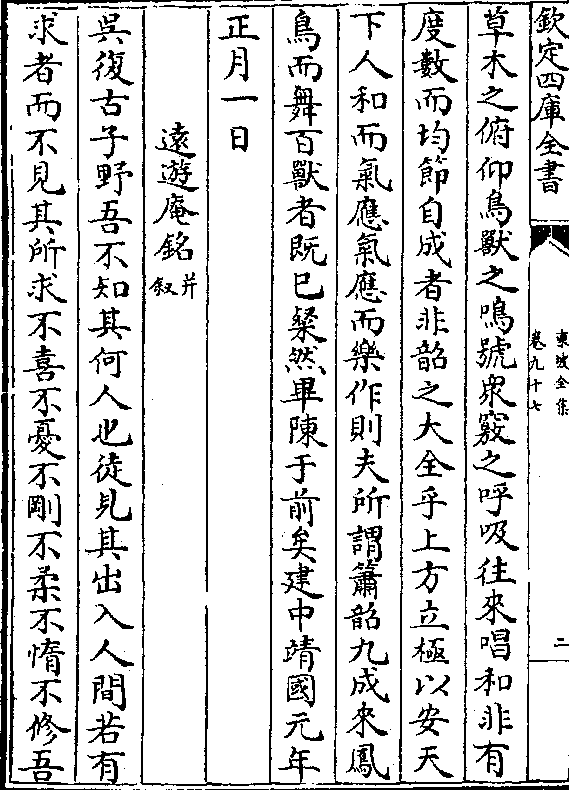 欽定四庫全書
東坡全集
卷九十七
二
草木之俯仰鳥獸之鳴號衆竅之呼吸往來唱和非有
度數而均節自成者非韶之大全乎上方立極以安天
下人和而氣應氣應而樂作則夫所謂簫韶九成來鳳
鳥而舞百獸者既已粲然畢陳于前矣建中靖國元年
正月一日
遠遊庵銘并叙
吳復古子野吾不知其何人也徒見其出入人間若有
求者而不見其所求不喜不憂不剛不柔不惰不修吾